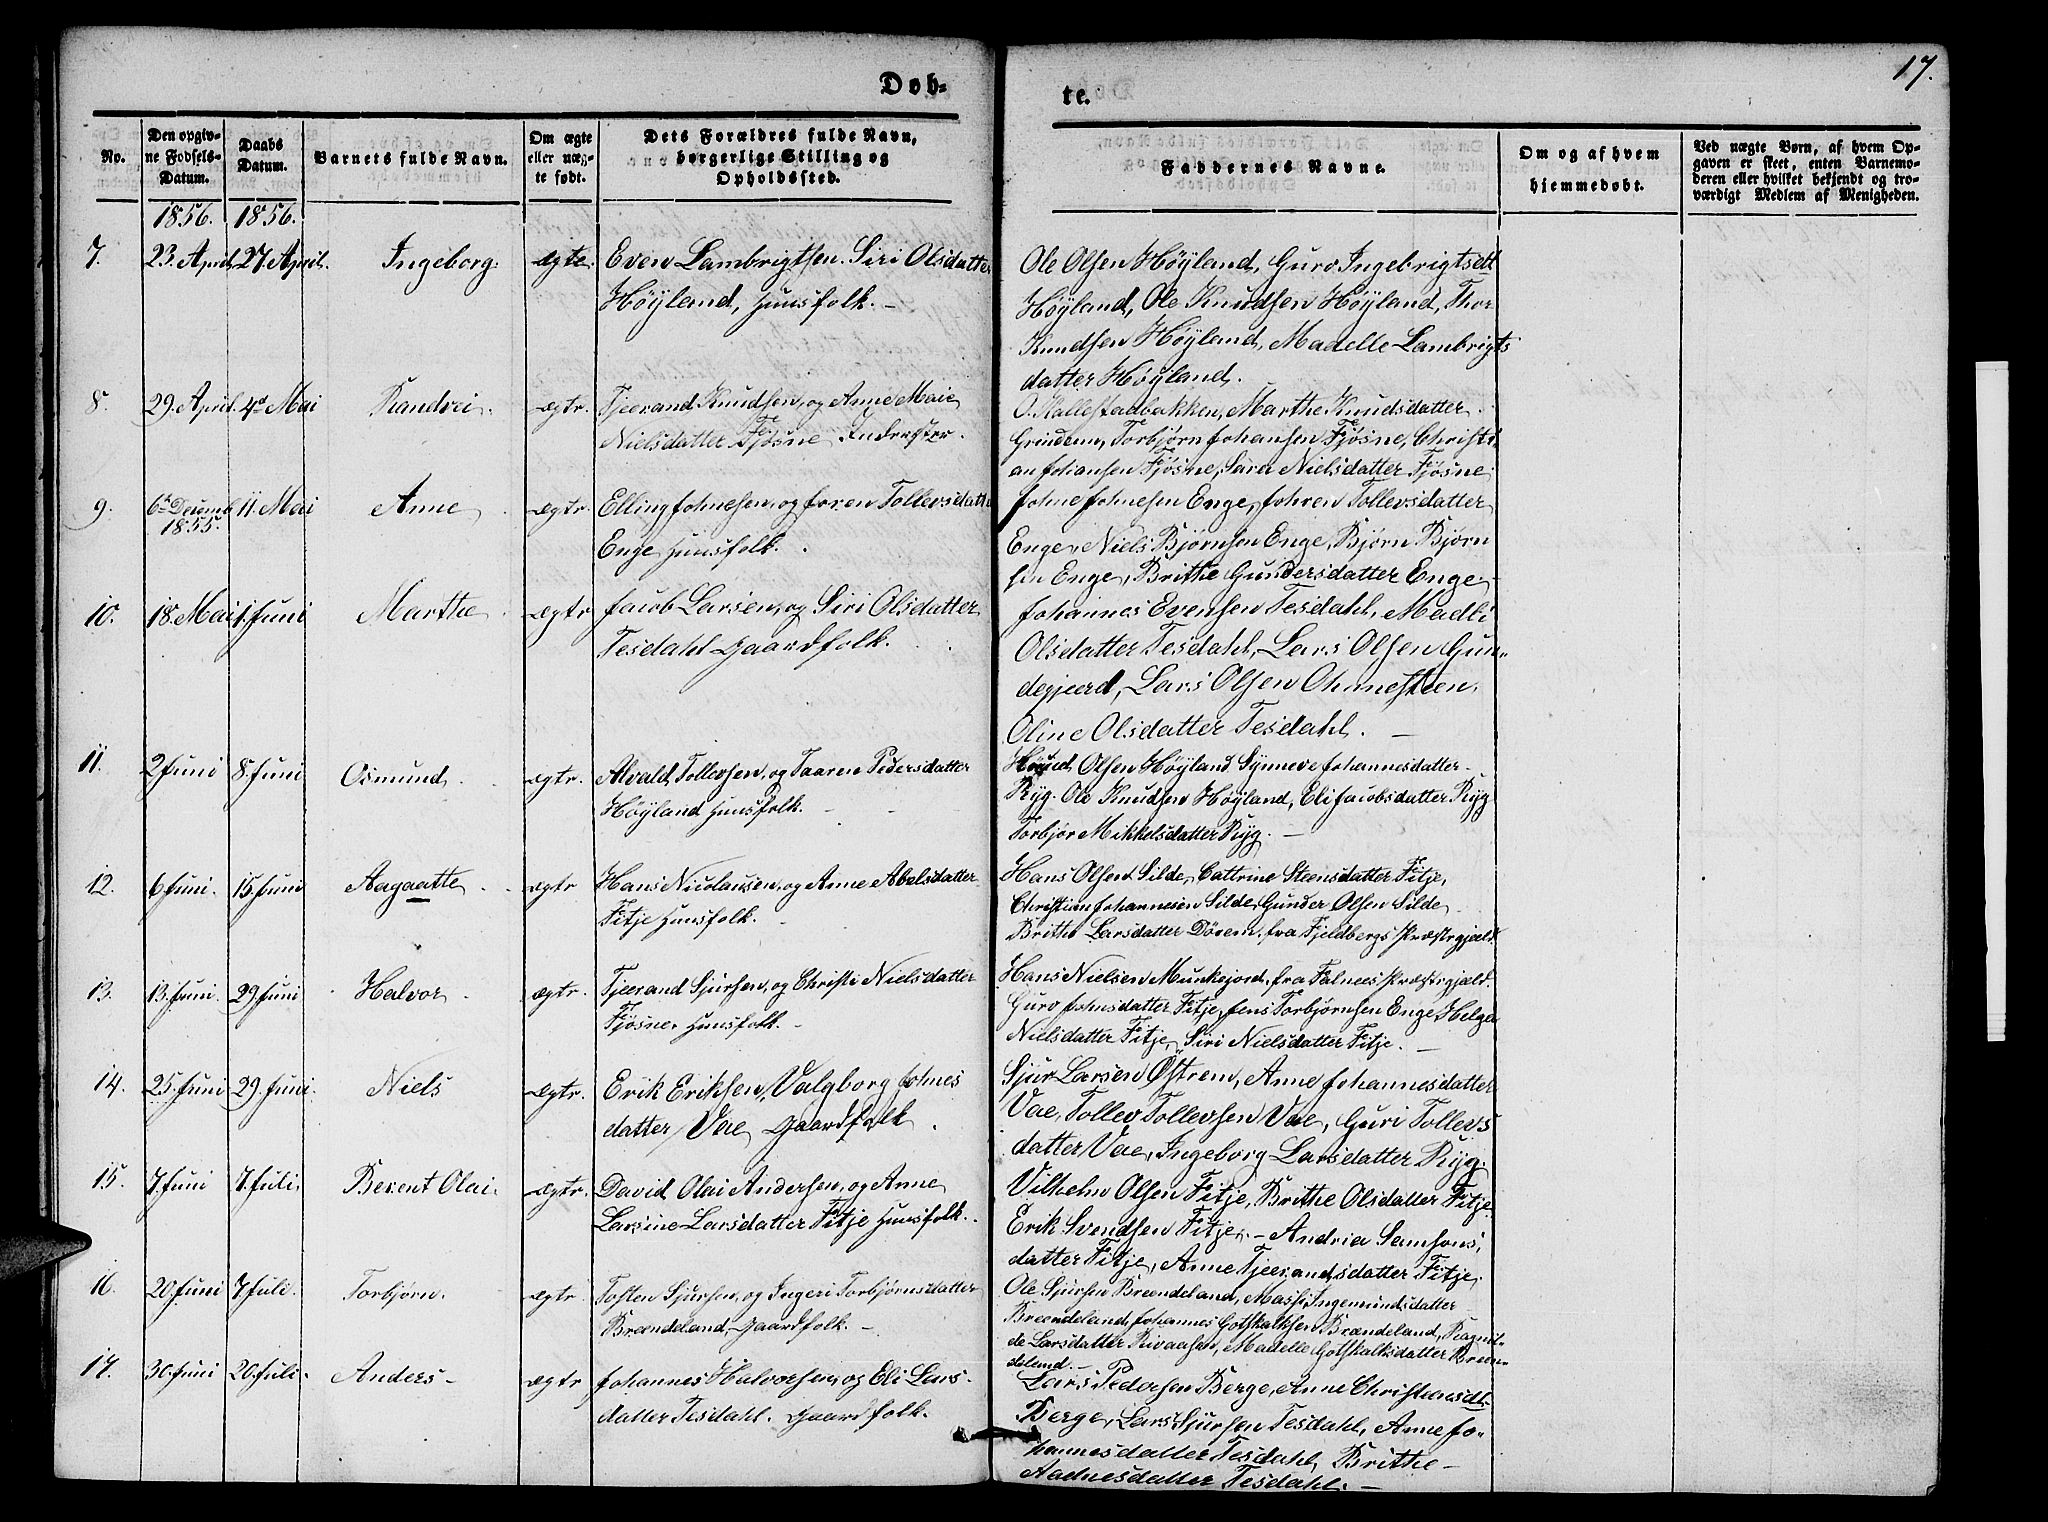 Døb-
te.
17.
No.
Den opgiv-
ne Fødsels-
Datum.
Daabs
Datum.
Barnets fulde Navn.
Om ægte
eller uæg-
te født.
Dets Forældres fulde Navn,
borgerlige Stilling og
Opholdssted.
Faddernes Navne.
Om og af hvem
hjemmedøbt.
Ved uægte Børn, af hvem Op-
gaven er skeet, enten Barnemo-
deren eller hvilket bekjendt og tro-
værdigt Medlem af Menigheden.
1856. 1856.
7. 23. April 27 April. Ingeborg. ægte. Even Lambrigtsen. Siri Olsdatter
Høyland, Huusfolk. –
Ole Olsen Høyland, Guro Ingebrigtsdtt
Høyland, Ole Knudsen Høyland, Thor
Knudsen Høyland, Madelle Lambrigts
datter Høyland.
8. 29. April. 4de Mai Randvei. ægte. Tjerand Knudsen, og Anne Marie
Nielsdatter Fjøsne, Inderster.
O. Kallestadbakken, Marthe Knudsdatter
Grindem, Torbjørn Johansen Fjøsne, Christi
an Johansen Fjøsne, Sara Nielsdatter Fjøsne
9. 6te Decemb 11. Mai Anne ægte. Elling Johnesen, og Joren Tollevsdatter
1855.
Enge Huusfolk.
Johne Johnesen Enge, Johren Tollevsdatter
Enge, Niels Bjørnsen Enge, Bjørn Bjørn
sen Enge, Brithe Gundersdatter Enge. –
10. 18. Mai 1. Juni Martha ægte Jacob Larsen, og Siri Olsdatter
Tesdahl Gaardfolk.
Johannes Evensen Tesdahl, Madli
Olsdatter Tesdahl, Lars Olsen Gun-
degjeerd, Lars Olsen Ohmesteen,
Oline Olsdatter Tesdahl. –
11. 2 Juni 8. Juni Osmund. ægte. Alvald Tollevsen, og Taaren Pedersdatter
Høyland Huusfolk. –
Olsen Høyland Synneve Johannesdatter
Ryg. Ole Knudsen Høyland, Eli Jacobsdatter Ryg
Torbjør Mikkelsdatter Ryg. –
12. 6 Juni. 15 Juni Aagaatte. ægte Hans Nicolausen, og Anne Abelsdatter
Fitje Huusfolk. –
Hans Olsen Silde, Cattrine Steensdatter Fitje,
Christian Johannesen Silde, Gunder Olsen Silde
Brithe Larsdatter Døvem, fra Fjeldbergs Præstegjeld
13. 13. Juni. 29 Juni Halvor. ægte. Tjeerand Sjursen, og Christi Nielsdatter
Fjøsne. Huusfolk. –
Hans Nielsen Munkejord, fra Falnees Præstegjeld.
Guro Johnsdatter Fitje, Jens Torbjørnsen Enge, Helge
Nielsdatter Fitje, Siri Nielsdatter Fitje. –
14. 25. Juni 29. Juni. Niels ægte. Erik Eriksen, Valgborg Johnes
datter Vae, Gaardfolk.
Sjur Larsen Østrem, Anne Johannesdatter
Vae, Tollev Tollevsen Vae, Guri Tollevs
datter Vae, Ingeborg Larsdatter Ryg.
15. 7. Juni 7. Juli. Berent Olai. ægte. David Olai Andersen, og Anne
Larsine Larsdatter Fitje Huusfolk.
Vilhelm Olsen Fitje, Brithe Olsdatter Fitje
Erik Svendsen Fitje. – Andria Samsons
datter Fitje, Anne Tjeerandsdatter Fitje.
16. 20. Juni 7 Juli. Torbjørn. ægte. Tosten Sjursen, og Ingeri Torbjørnsdatter
Brændeland, Gaardfolk. –
Ole Sjursen Brændeland, Massi Ingemundsdatter
Brændeland, Johannes Gotskalksen Brændeland, Ragnil-
de Larsdatter Rivaasen, Madelle Gotskalksdatter Bræn-
deland. –
17. 30. Juni 20. Juli. Anders – ægte Johannes Halvorsen, og Eli Lars-
datter Tesdahl. Gaardfolk.
Lars Pedersen Berge, Anne Christiansdt.
Berge, Lars Sjursen Tesdahl, Anne Jo-
hannesdatter Tesdahl, Brithe –
Aadnesdatter Tesdahl. –